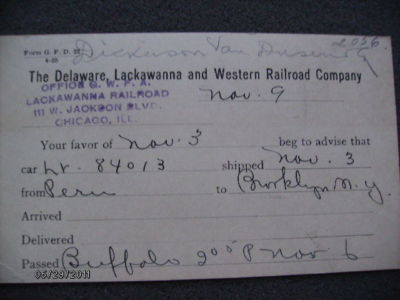 Form G. F. D. 
4-25
Dickerson Van Dusen
2056
The Delaware, Lackawanna and Western Railroad Company
OFFICE G. W. F. A.
LACKAWANNA RAILROAD
111 W. JACKSON BLVD.
CHICAGO, ILL.
Nov. 9
Your favor of Nov. 3 beg to advise that
car 84013 shipped Nov. 3
from Peru to Brooklyn N.Y.
Arrived
Delivered
Passed Buffalo 205 P Nov 6
05/29/2011